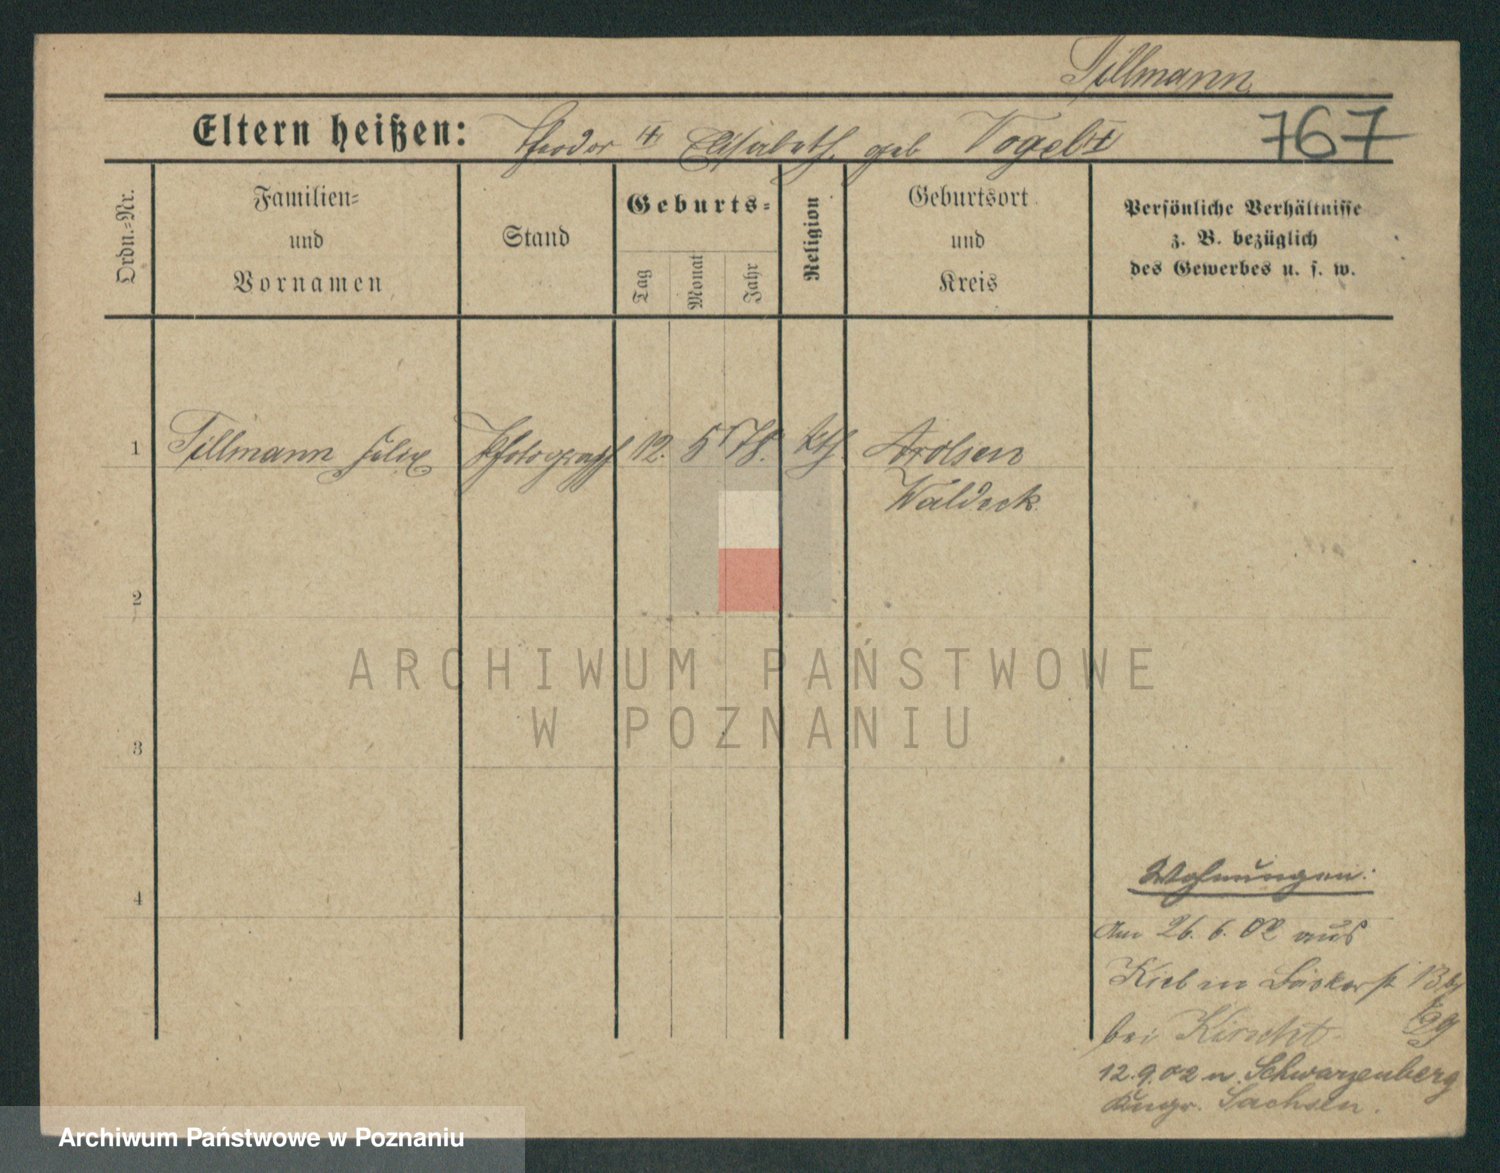 Tillmann
Eltern heißen: Theodor Elisabeth geb Vogel
767
Ordn.-Nr.
Familien-
und
Vornamen
Stand
Geburts-
Tag
Monat
Jahr
Religion
Geburtsort
und
Kreis
Persönliche Verhältnisse
z. B. bezüglich
des Gewerbes u. s. w.
1 Tillmann Felix Photograph 12. 5 78. kth Arolsen
Waldeck
2
3
4
ARCHIWUM PAŃSTWOWE
W POZNANIU
Wohnungen:
Am 26. 6. 02 aus
in Bäckerst 13b
bei
12. 9. 02 n. Schwarzenberg
Kngr. Sachsen.
Archiwum Państwowe w Poznaniu